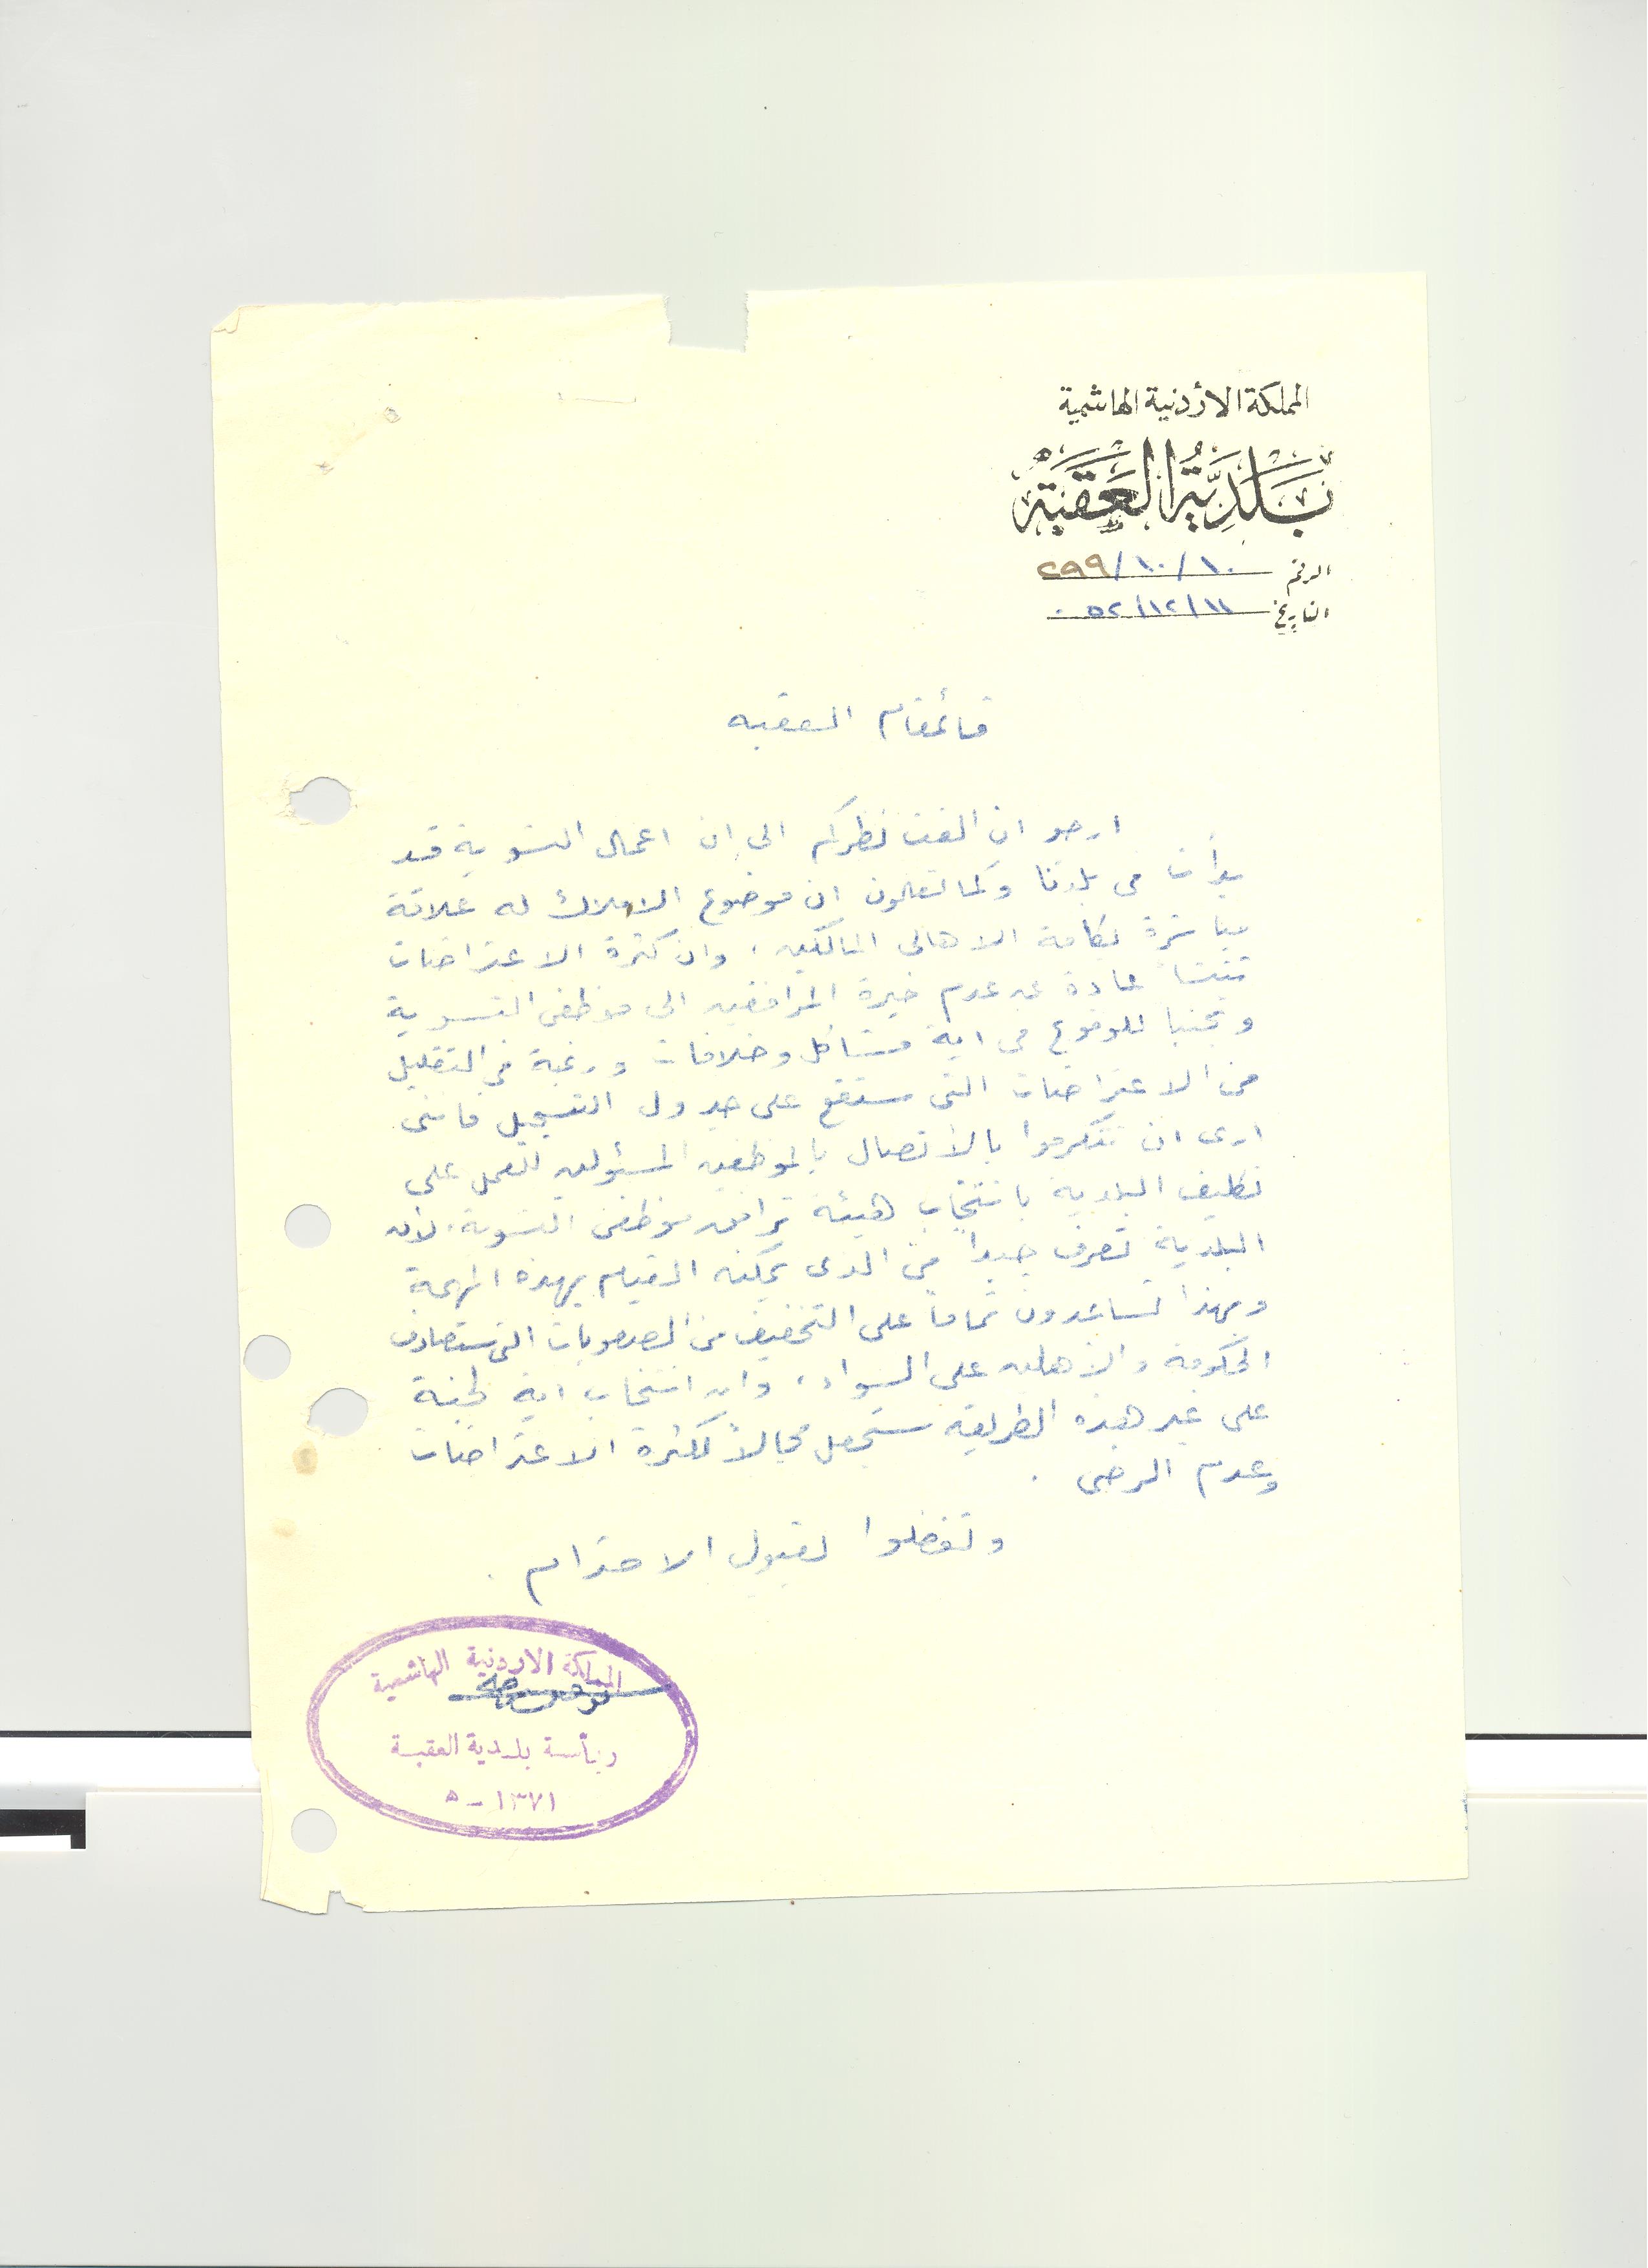 المملكة الأردنية الهاشمية
بَلَدِيَّةُ العَقَبَة
الرقم ١٠/١٠/٢٩٩
التاريخ ١١/١٢/٥٢
قائمقام العقبه
ارجو ان الفت نظركم الى ان اعمال التسوية قد
بدأت في بلدتنا وكما تعلمون ان موضوع الاملاك له علاقة
مباشرة بكافة الاهالي المالكين ، وان كثرة الاعتراضات
تنشأ عادة عن عدم خبرة المرافقين الى موظفي التسوية
وتجنبا للوقوع في اية مشاكل وخلافات ورغبة في التقليل
من الاعتراضات التي ستقع على جدول التسجيل فانني
ارى ان تتكرموا بالأتصال بالموظفين المسئولين للعمل على
تكليف البلدية بانتخاب هيئة ترافق موظفي التسوية، لأن
البلدية تعرف جيداً من الذي يمكنه القيام بهذه المهمة
وبهذا تساعدون تماماً على التخفيف من الصعوبات التي ستصادف
الحكومة والأهلين على السواء ، وان انتخاب اية لجنة
على غير هذه الطريقة ستجعل مجالاً لكثرة الاعتراضات
وعدم الرضى .
وتفضلوا بقبول الاحترام .
المملكة الاردنية الهاشمية
رئاسة بلدية العقبة
١٣٧١ - ه